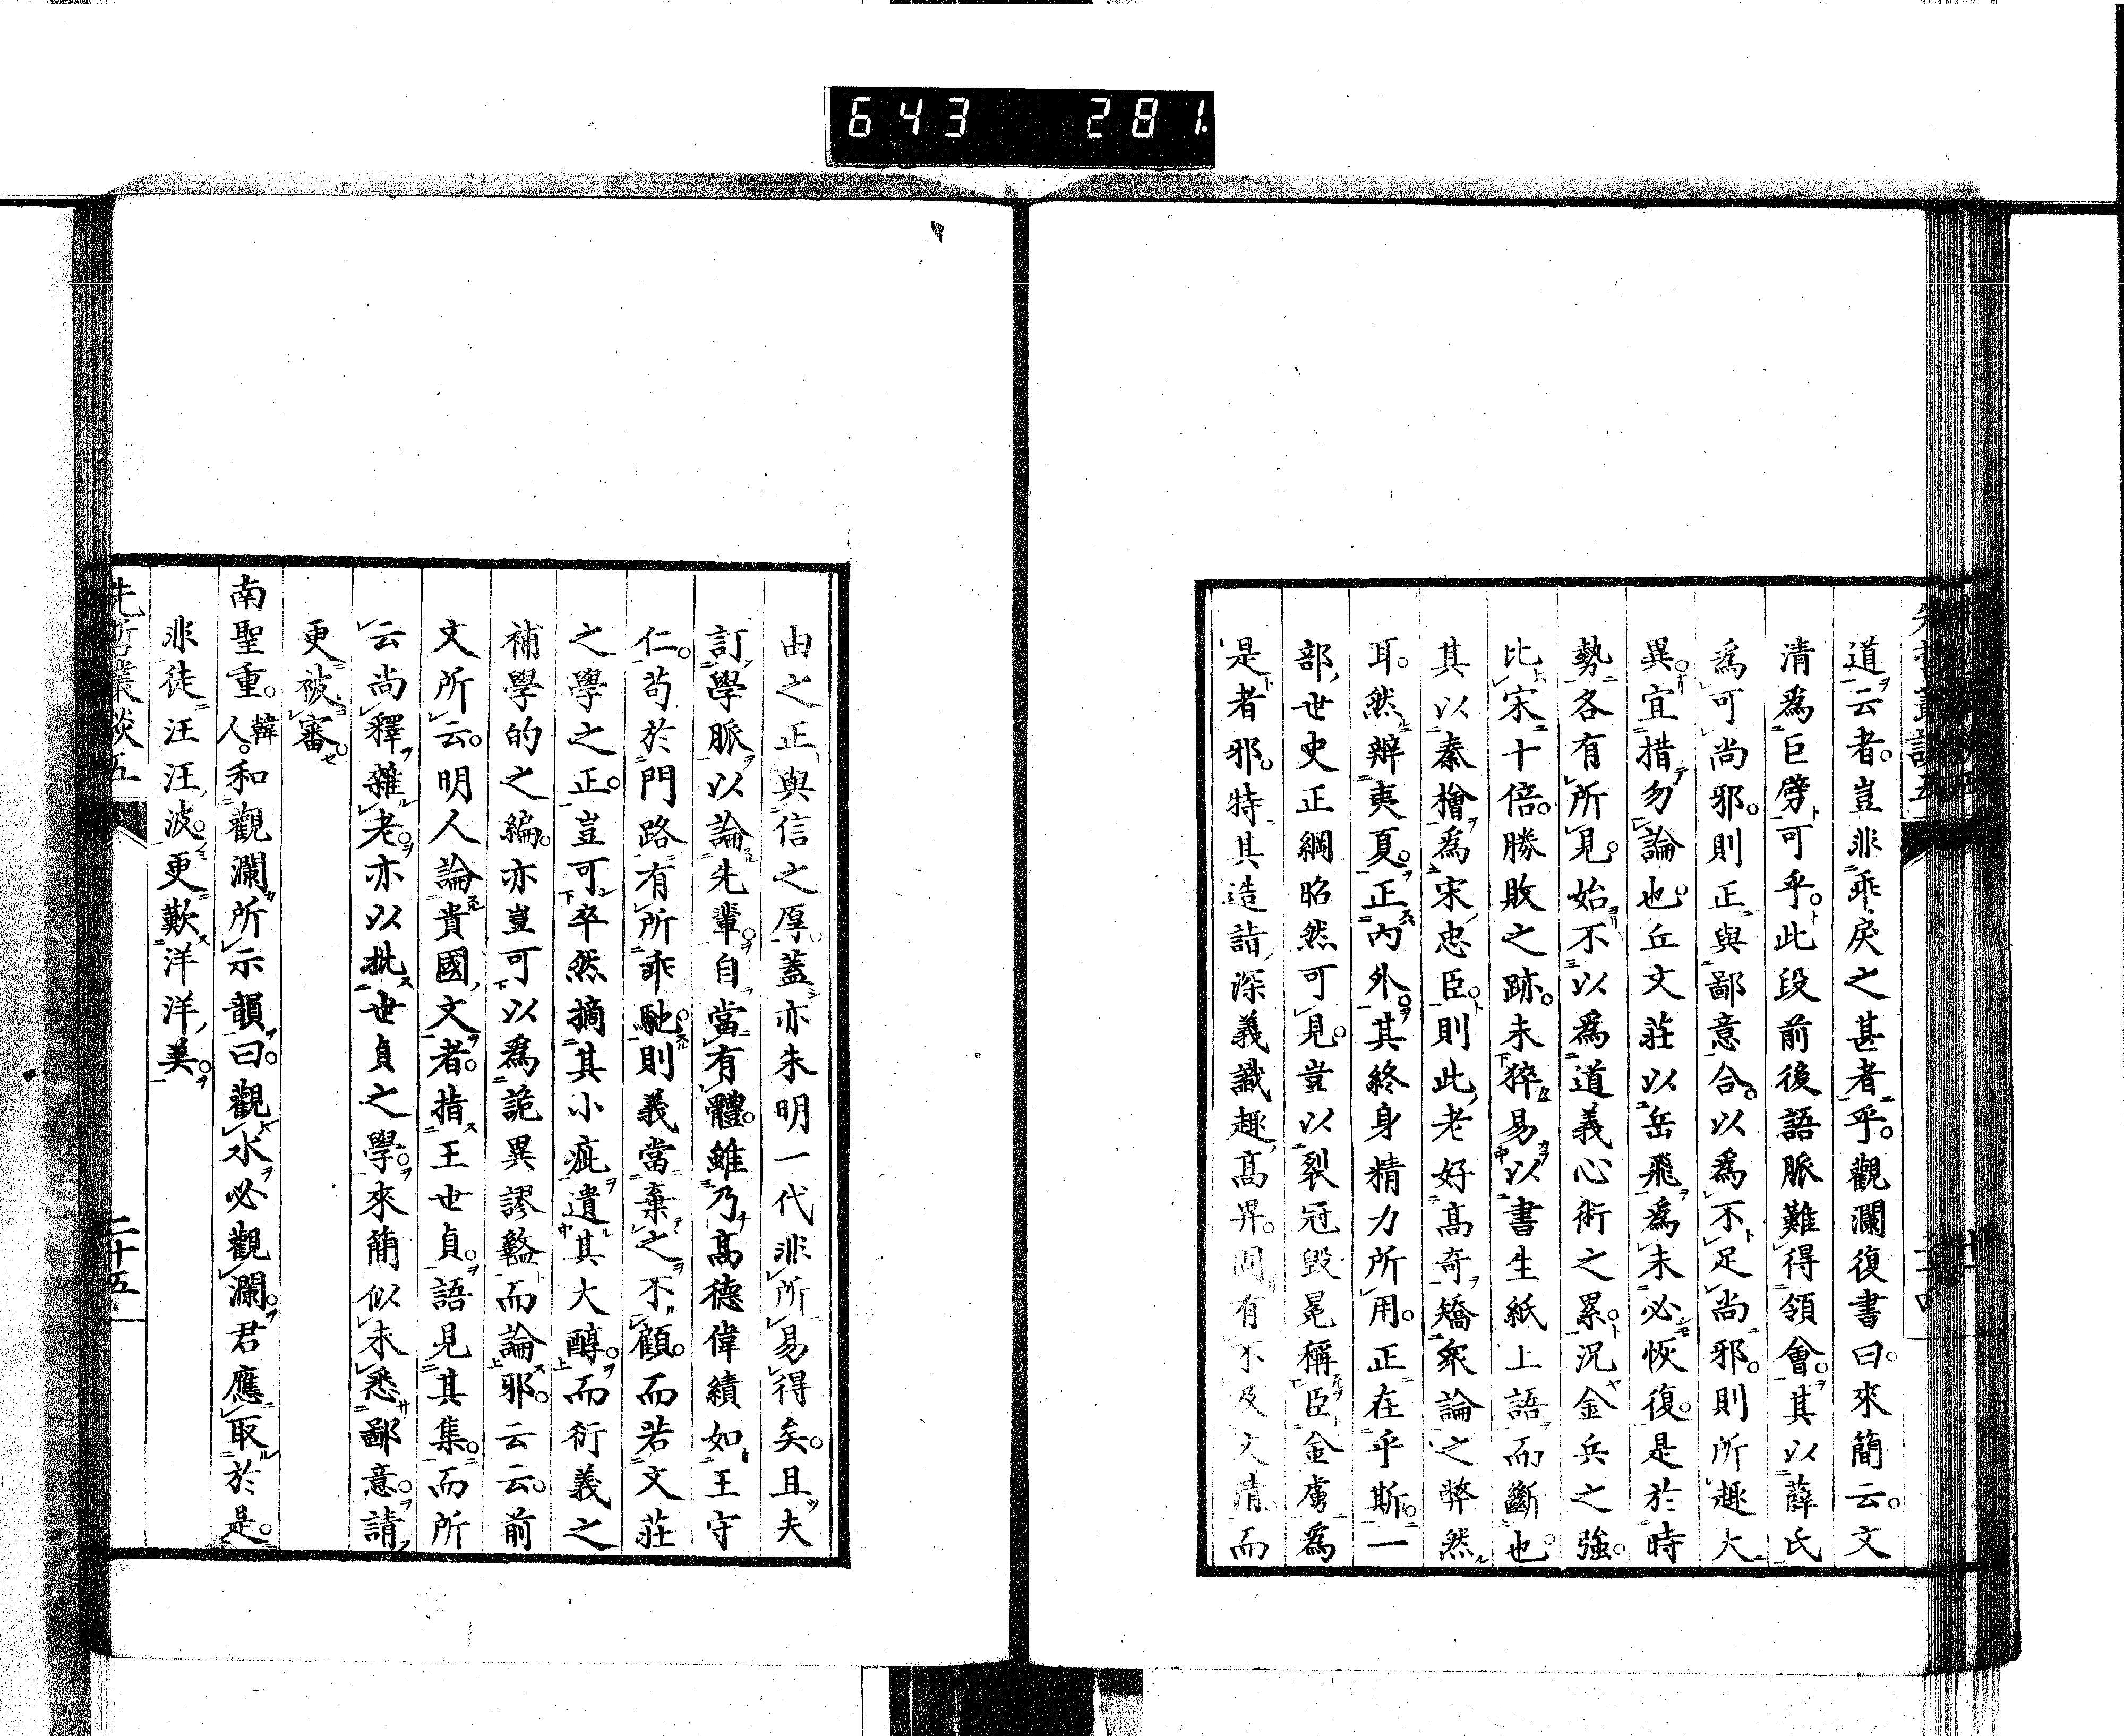 643 281
道云者。豈非乖戾之甚者乎。觀瀾復書曰。來簡云。文
清爲巨擘可乎。此段前後語脈難得領會。其以薛氏
爲可尚邪。則正與鄙意合。以爲不足尚邪。則所趣大
異。宜措勿論也。丘文莊以岳飛爲未必恢復。是於時
勢各有所見。始不以爲道義心術之累。況金兵之強。
比宋十倍。勝敗之跡。未猝易以書生紙上語而斷也。
其以秦檜爲宋忠臣。則此老好高奇矯衆論之弊然
耳。然辨夷夏。正內外。其終身精力所用。正在乎斯。一
部世史正綱昭然可見。豈以裂冠毀冕稱臣金虜爲
是者邪。特其造詣深義識趣高畀。間有不及文清而
由之正與信之厚。蓋亦朱明一代非所易得矣。且夫
訂學脈以論先輩。自當有體。雖乃高德偉績如王守
仁。苟於門路有所乖馳。則義當棄之不顧。而若文莊
之學之正。豈可卒然摘其小疵遺其大醇。而衍義之
補學的之編。亦豈可以爲詭異謬盭而論邪。云云。前
文所云。明人論貴國文者。指王世貞。語見其集。而所
云尚釋雜老。亦以批世貞之學。來簡似未悉鄙意。請
更被審。
南聖重。韓人。和觀瀾所示韻曰。觀水必觀瀾。君應取於是。
非徒汪汪波。更歎洋洋美。
先哲叢談五
二十五